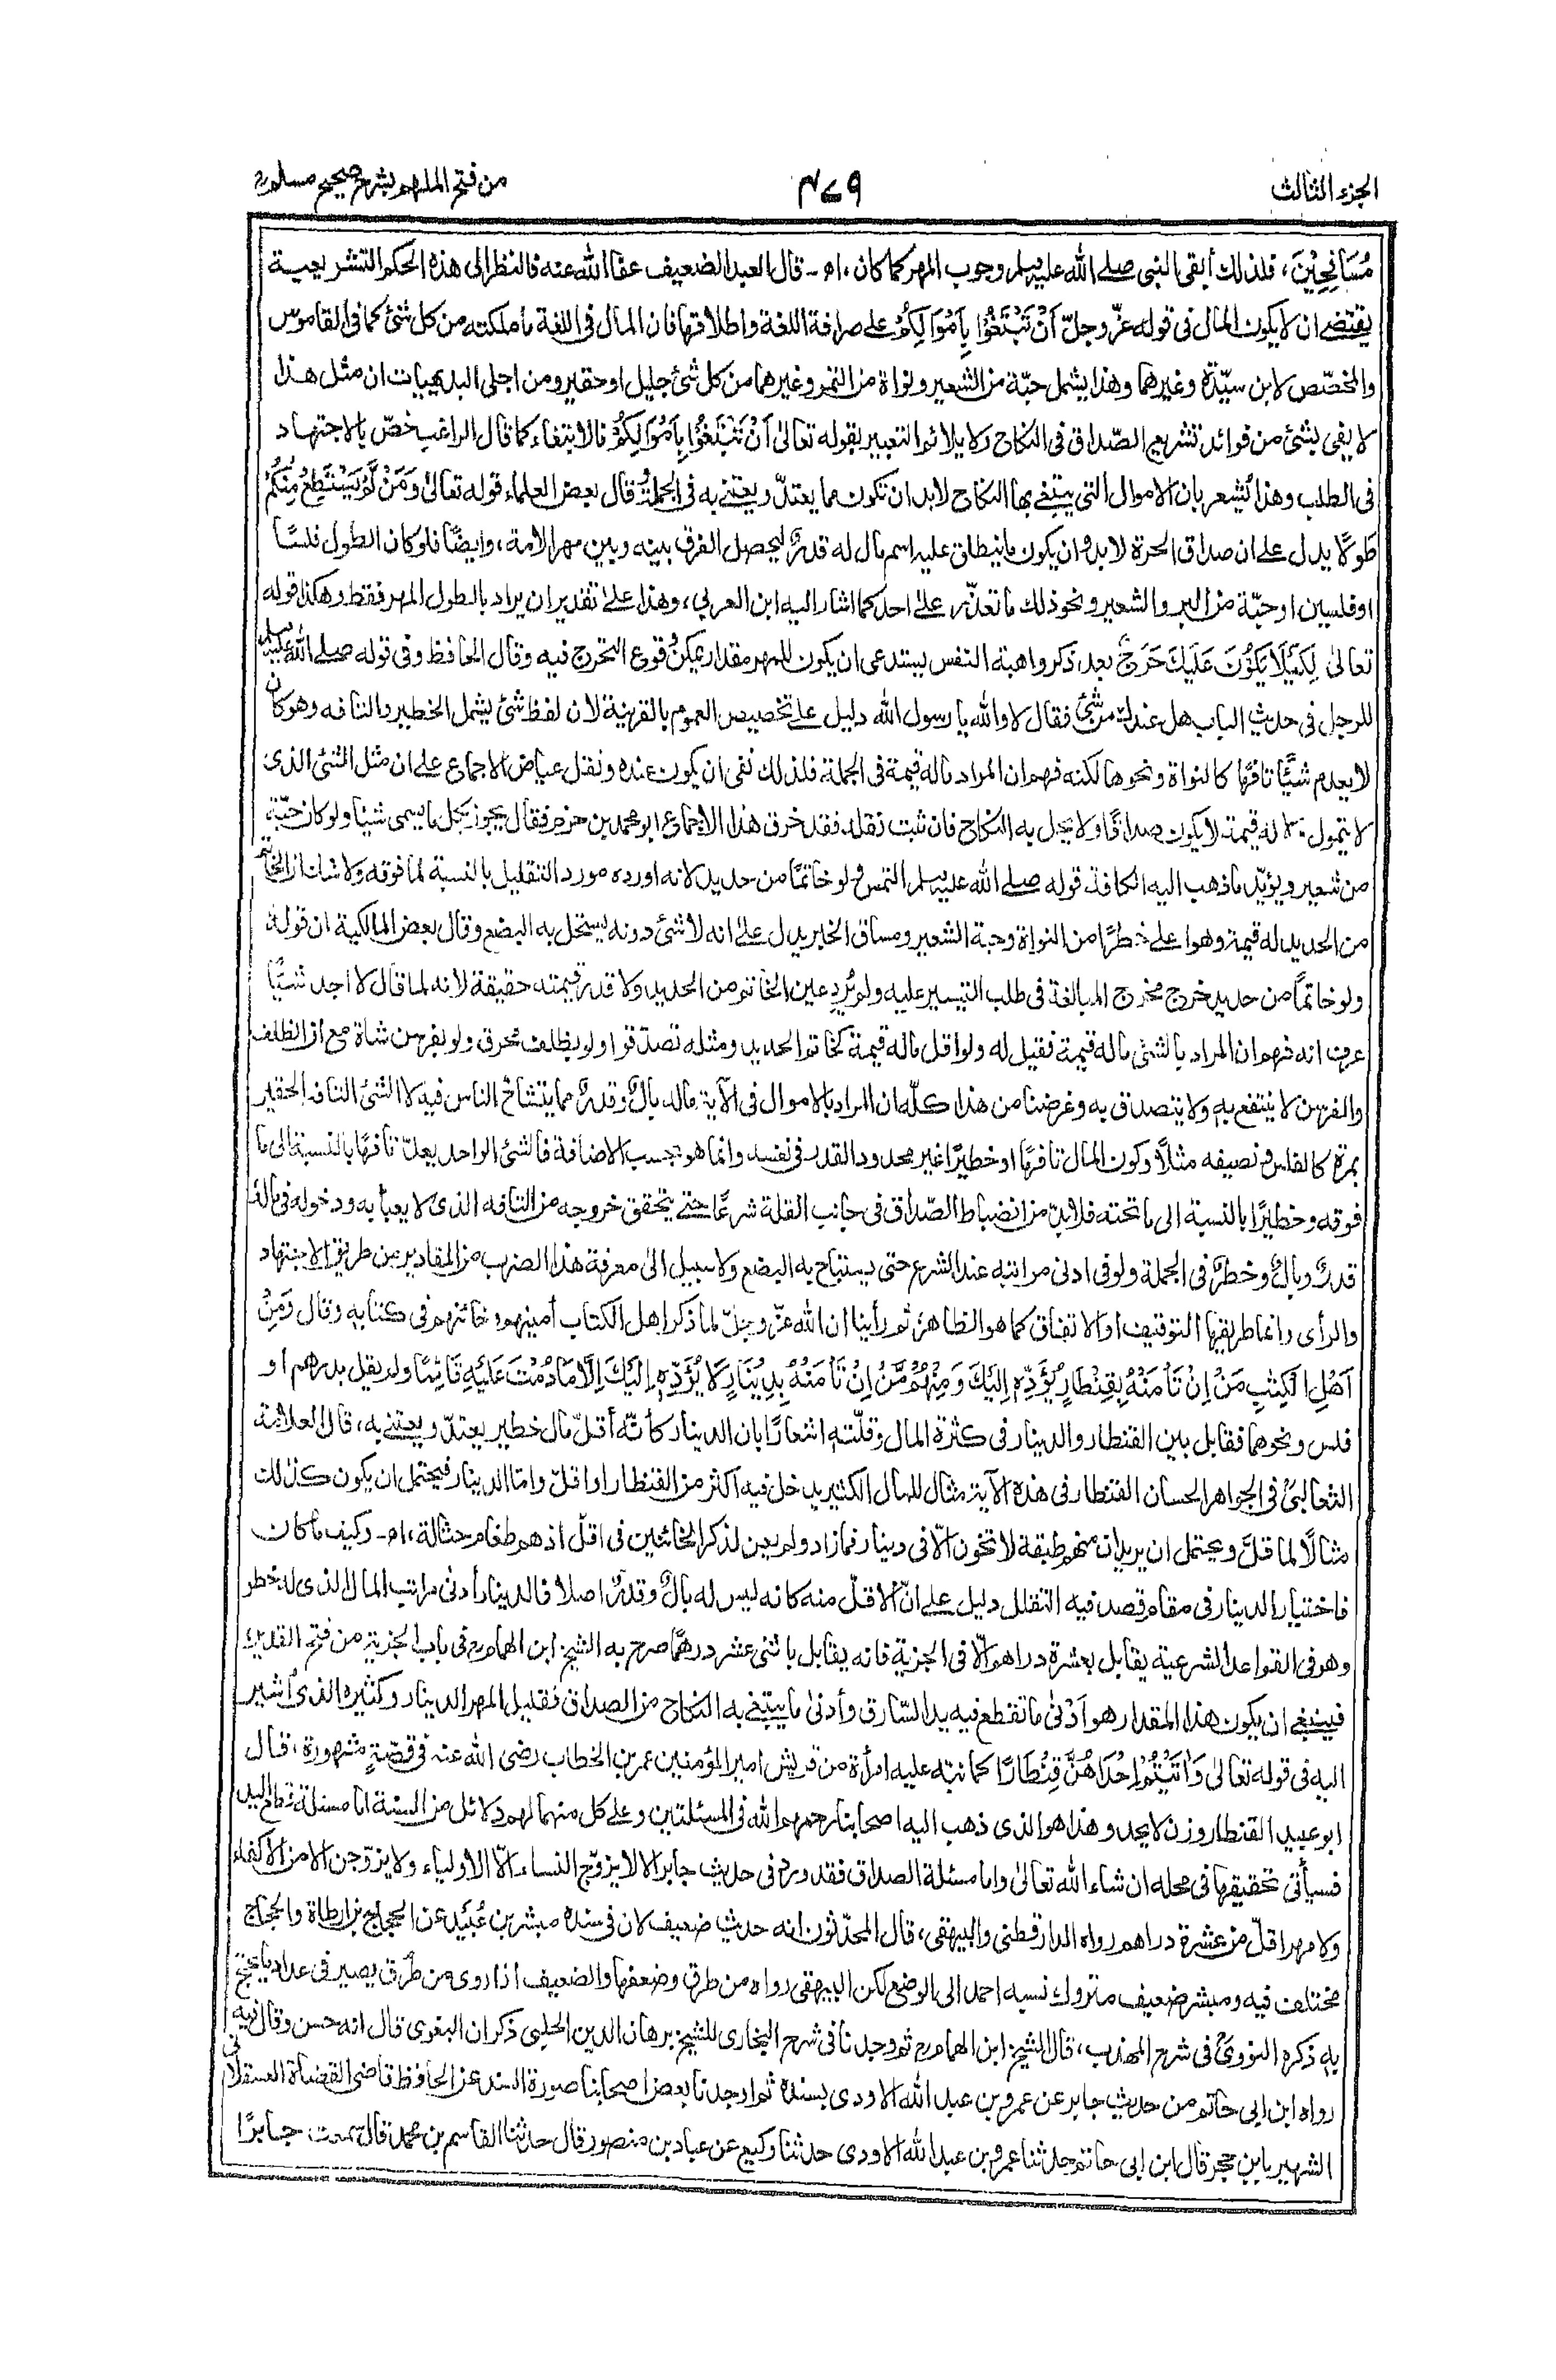 الجزء الثالث
۴۷۹
من فتح الملهم بشرح صحيح مسلم
مُسَافِحِيْنَ، فلذلك أبقى النبى صلے الله عليه وسلم وجوب المهر كما كان، اه۔ قال العبد الضعيف عفا الله عنه فالنظر الى هذه الحكم التشريعية
يقتضے ان لا يكون المال فى قوله عزّ وجلّ اَنْ تَبْتَغُوْا بِاَمْوَالِكُمْ على صرافة اللغة واطلاقها فان المال فى اللغة ما ملكته من كل شئ كما فى القاموس
والمخصّص لابن سيّدة وغيرهما وهذا يشمل حبّة من الشعير ونواة من التمر وغيرهما من كل شئ جليل او حقير ومن اجلى البديهيات ان مثل هذا
لا يفى بشئ من فوائد تشريع الصّداق فى النكاح ولا يلائم التعبير بقوله تعالىٰ اَنْ تَبْتَغُوْا بِاَمْوَالِكُمْ فالابتغاء كما قال الراغب خصّ بالاجتهاد
فى الطلب وهذا يُشعر بان الاموال التى يبتغى بها النكاح لابد ان تكون مما يعتدّ ويعتنے به فى الجملة وقال بعض العلماء قوله تعالىٰ وَمَنْ لَّمْ يَسْتَطِعْ مِنْكُمْ
طَوْلًا يدل علے ان صداق الحرة لابد وان يكون ما ينطلق عليه اسم مال له قدرٌ ليحصل الفرق بينه وبين مهر الامة، وايضًا فلو كان الطول فلسًا
او فلسين او حبّة من البر والشعير ونحو ذلك ما تعذّر علىٰ احد كما اشار اليه ابن العربي، وهذا علىٰ تقدير ان يراد بالطول المهر فقط وهكذا قوله
تعالىٰ لِكَيْلَا يَكُوْنَ عَلَيْكَ حَرَجٌ بعد ذكر واهبة النفس يستدعى ان يكون للمهر مقدار يمكن وقوع التحرج فيه وقال الحافظ وفى قوله صلے الله عليه وسلم
للرجل فى حديث الباب هل عندك من شئ فقال لا والله يا رسول الله دليل علے تخصيص العموم بالقرينة لان لفظ شئ يشمل الخطير والتافه وهو كان
لا يعدم شيئًا تافهًا كالنواة ونحوها لكنه فهم ان المراد ماله قيمة فى الجملة فلذلك نفى ان يكون عنده ونقل عياض الاجماع علے ان مثل الشئ الذى
لا يتمول ولا له قيمة لا يكون صداقًا ولا يحل به النكاح فان ثبت نقله فقد خرق هذا الاجماع ابو محمد بن حزم فقال يجوز بكل ما يسمى شيئا ولو كان حبّة
من شعير ويؤيّد ما ذهب اليه الكافة قوله صلے الله عليه وسلم التمس ولو خاتمًا من حديد لانه اورده مورد التقليل بالنسبة لما فوقه ولا شك ان الخاتم
من الحديد له قيمة وهو اعلى خطرًا من النواة وحبة الشعير ومساق الخبر يدل علىٰ انه لا شئ دونه يستحل به البضع وقال بعض المالكية ان قوله
ولو خاتمًا من حديد خرج مخرج المبالغة فى طلب التيسير عليه ولم يُرِد عين الخاتم من الحديد ولا قدر قيمته حقيقة لانه لما قال لا اجد شيئًا
عرف انه فهم ان المراد بالشئ ماله قيمة فقيل له ولو اقل ماله قيمة كخاتم الحديد ومثله تصدّقوا ولو بظلف محرق ولو بفرسن شاة مع ان الظلف
والفرسن لا ينتفع به ولا يتصدق به وغرضنا من هذا كلّه ان المراد بالاموال فى الآية ماله بالٌ وقدرٌ مما يتشاحّ الناس فيه لا الشئ التافه الحقير
بمرة كالفلس ونصيفه مثلاً وكون المال تافهًا او خطيرًا غير محدود القدر فى نفسه وانما هو بحسب الاضافة فالشئ الواحد يعدّ تافهًا بالنسبة الى ما
فوقه وخطيرًا بالنسبة الى ما تحته فلابد من انضباط الصّداق فى جانب القلة شرعًا حتے يتحقق خروجه من التافه الذى لا يعبأ به ودخوله فى ماله
قدرٌ وبالٌ وخطرٌ فى الجملة ولو فى ادنى مراتبه عند الشرع حتى يستباح به البضع ولا سبيل الىٰ معرفة هذا الضرب من المقادير من طريق الاجتهاد
والرأى وانما طريقها التوقيف او الاتفاق كما هو الظاهر ثم رأينا ان الله عزّ وجلّ لما ذكر اهل الكتاب أمينهم وخائنهم فى كتابه وقال وَمِنْ
اَهْلِ الْكِتٰبِ مَنْ اِنْ تَاْمَنْهُ بِقِنْطَارٍ يُّؤَدِّهٖ اِلَيْكَ وَمِنْهُمْ مَّنْ اِنْ تَاْمَنْهُ بِدِيْنَارٍ لَّا يُؤَدِّهٖ اِلَيْكَ اِلَّا مَا دُمْتَ عَلَيْهِ قَائِمًا ولم يقل بدرهم او
فلس ونحوهما فقابل بين القنطار والدينار فى كثرة المال وقلّته اشعارًا بان الدينار كأنّه أقلّ مال خطير يعتدّ ويعتنے به، قال العلامة
الثعالبى فى الجواهر الحسان القنطار فى هذه الآية مثال للمال الكثير يدخل فيه اكثر من القنطار او اقلّ واما الدينار فيحتمل ان يكون كذلك
مثالًا لما قلّ ويحتمل ان يريد ان منهم طبقة لا تخون الّا فى دينار فما زاد ولم يعن لذكر الخائنين فى اقلّ اذ هم طغام حثالة، اه۔ وكيف ما كان
فاختيار الدينار فى مقام قصد فيه التقلل دليل علے انّ الاقلّ منه كانه ليس له بالٌ وقدرٌ اصلا فالدينار أدنىٰ مراتب المال الذى له خطر
وهو فى القواعد الشرعية يقابل بعشرة دراهم الّا فى الجزية فانه يقابل باثنى عشر درهمًا صرح به الشيخ ابن الهمام رح فى باب الجزية من فتح القدير
فينبغے ان يكون هذا المقدار هو اَدْنىٰ ما تقطع فيه يد السّارق وأدنىٰ ما يبتغے به النكاح من الصداق فقليل المهر الدينار وكثيره الذى أشير
اليه فى قوله تعالىٰ وَاٰتَيْتُمْ اِحْدَاهُنَّ قِنْطَارًا كما نبّه عليه امرأة من قريش امير المؤمنين عمر بن الخطاب رضى الله عنه فى قصّةٍ مشهورة، قال
ابو عبيد القنطار وزن لا يحد وهذا هو الذى ذهب اليه اصحابنا رحمهم الله فى المسئلتين وعلے كل منهما لهم دلائل من السنة اما مسئلة قطع اليد
فسيأتى تحقيقها فى محله ان شاء الله تعالىٰ واما مسئلة الصداق فقد ورد فى حديث جابر الا لا يزوّج النساء الّا الاولياء ولا يزوّجن الا من الاكفاء
ولا مهر اقلّ من عشرة دراهم رواه الدارقطنى والبيهقى، قال المحدّثون انه حديث ضعيف لان فى سنده مبشر بن عُبَيْد عن الحجاج بن ارطاة والحجاج
مختلف فيه ومبشر ضعيف متروك نسبه احمد الى الوضع لكن البيهقى رواه من طرق وضعفها والضعيف اذا روى من طرق يصير فى عداد ما يحتج
به ذكره النووىؒ فى شرح المهذب، قال الشيخ ابن الهمام رح ثم وجدنا فى شرح البخارى للشيخ برهان الدين الحلبى ذكر ان البغوى قال انه حسن وقال فيه
رواه ابن ابى حاتم من حديث جابر عن عمرو بن عبد الله الاودى بسنده ثم اوجدنا بعض اصحابنا صورة السند عن الحافظ قاضى القضاة العسقلانى
الشهير بابن حجر قال ابن ابى حاتم حدثنا عمرو بن عبد الله الاودى حدثنا وكيع عن عباد بن منصور قال حدثنا القاسم بن محمد قال سمعت جابرًا